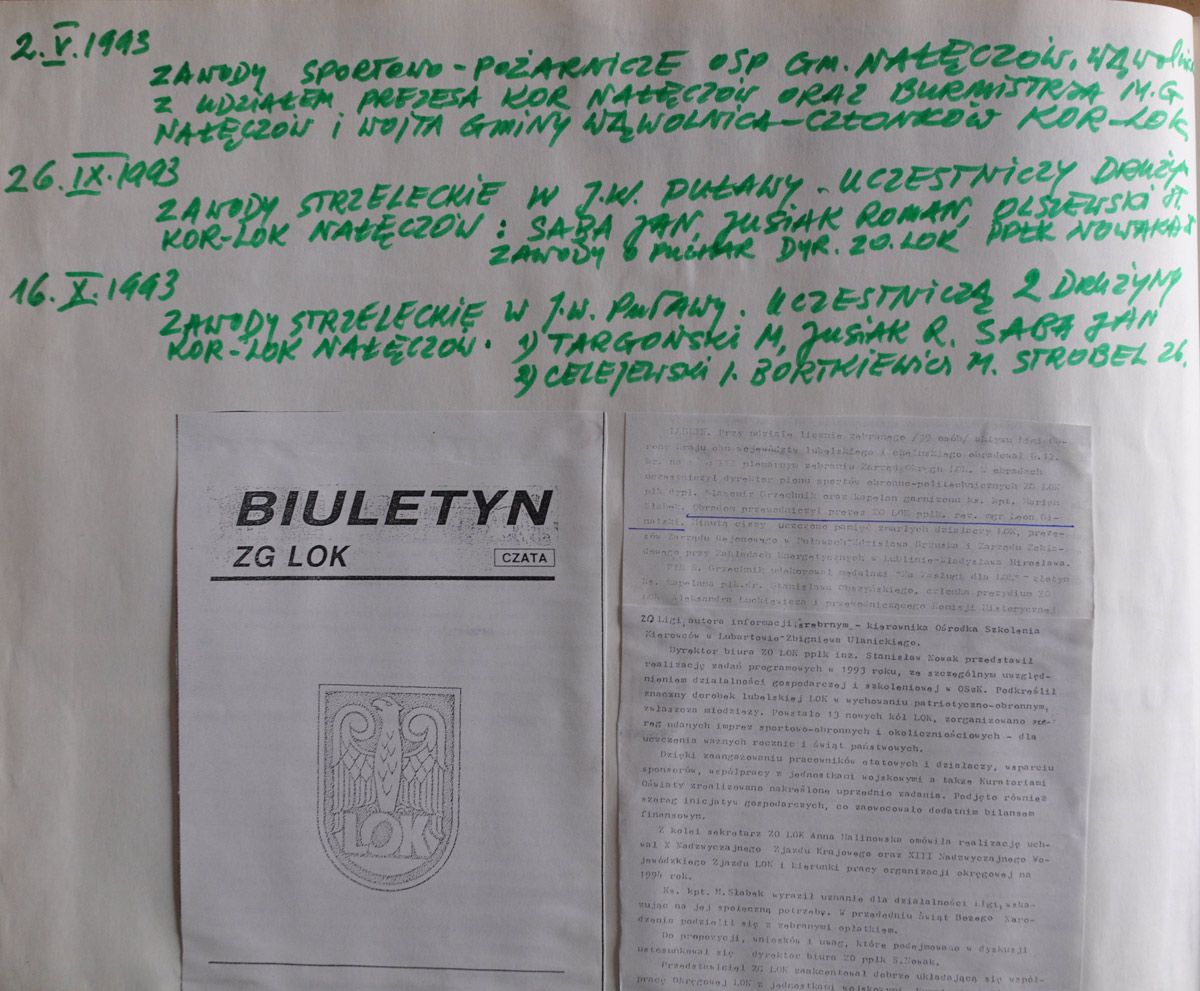 2.V.1993
ZAWODY SPORTOWO-POŻARNICZE OSP GM. NAŁĘCZÓW, WĄWOLNIC
Z UDZIAŁEM PREZESA KOR NAŁĘCZÓW ORAZ BURMISTRZA M.G.
NAŁĘCZÓW I WÓJTA GMINY WĄWOLNICA-CZŁONKÓW KOR-LOK
26.IX.1993
ZAWODY STRZELECKIE W J.W. PUŁAWY. UCZESTNICZY DRUŻY
KOR-LOK NAŁĘCZÓW: SABA JAN, JUSIAK ROMAN, OLSZEWSKI ST.
ZAWODY O PUCHAR DYR. ZO.LOK PPŁK NOWAKA
16.X.1993
ZAWODY STRZELECKIE W J.W. PUŁAWY. UCZESTNICZĄ 2 DRUŻYNY
KOR-LOK NAŁĘCZÓW. 1) TARGOŃSKI M, JUSIAK R. SABA JAN
2) CELEJEWSKI J. BORTKIEWICZ M. STROBEL
BIULETYN
ZG LOK
CZATA
LOK
Przy udziale licznie zebranego /39 osób/ aktywu Ligi Ob-
rony Kraju obu województw lubelskiego i chełmskiego obradował 6.12.
br. na plenarnym zebraniu Zarząd Okręgu LOK. W obradach
uczestniczył dyrektor pionu sportów obronno-politechnicznych ZG LOK
płk dypl. Sławomir Grzechnik oraz kapelan garnizonu ks. kpt. Marian
Obradom przewodniczył prezes ZO LOK ppłk. rez. mgr Leon
Minutą ciszy uczczono pamięć zmarłych działaczy LOK, preze-
sów Zarządu Rejonowego w Puławach-Zdzisława Brzuska i Zarządu Zakła-
dowego przy Zakładach Energetycznych w Lublinie-Władysława Mirosława.
Płk S. Grzechnik udekorował medalami "Za zasługi dla LOK" - złotym
ks. kapelana płk.dr. Stanisława członka prezydium ZO
LOK Aleksandra Łuckiewicza i przewodniczącego Komisji Historycznej
ZO Ligi, autora informacji; srebrnym - kierownika Ośrodka Szkolenia
Kierowców w Lubartowie-Zbigniewa Ulanickiego.
Dyrektor biura ZO LOK ppłk inż. Stanisław Nowak przedstawił
realizację zadań programowych w 1993 roku, ze szczególnym uwzględ-
nieniem działalności gospodarczej i szkoleniowej w OSzK. Podkreślił
znaczny dorobek lubelskiej LOK w wychowaniu patriotyczno-obronnym,
zwłaszcza młodzieży. Powstało 13 nowych kół LOK, zorganizowano sze-
reg udanych imprez sportowo-obronnych i okolicznościowych - dla
uczczenia ważnych rocznic i świąt państwowych.
Dzięki zaangażowaniu pracowników etatowych i działaczy, wsparciu
sponsorów, współpracy z jednostkami wojskowymi a także Kuratoriami
Oświaty zrealizowano nakreślone uprzednio zadania. Podjęto również
szereg inicjatyw gospodarczych, co zaowocowało dodatnim bilansem
finansowym.
Z kolei sekretarz ZO LOK Anna Malinowska omówiła realizację uch-
wał X Nadzwyczajnego Zjazdu Krajowego oraz XIII Nadzwyczajnego Wo-
jewódzkiego Zjazdu LOK i kierunki pracy organizacji okręgowej na
1994 rok.
Ks. kpt. M.Słabek wyraził uznanie dla działalności Ligi, wska-
zując na jej społeczną potrzebę. W przededniu Świąt Bożego Naro-
dzenia podzielił się z zebranymi opłatkiem.
Do propozycji, wniosków i uwag, które podejmowano w dyskusji
ustosunkował się dyrektor biura ZO ppłk S.Nowak.
Przedstawiciel ZG LOK zaakcentował dobrze układającą się współ-
pracę Okręgowej LOK z jednostkami wojskowymi,